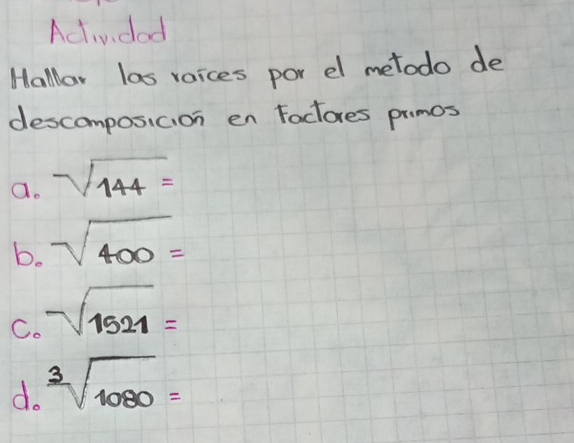 Actividad
Hallar las raíces por el metodo de
descomposición en factores primos
a. √144 =
b. √400 =
c. √1521 =
d. ³√1080 =